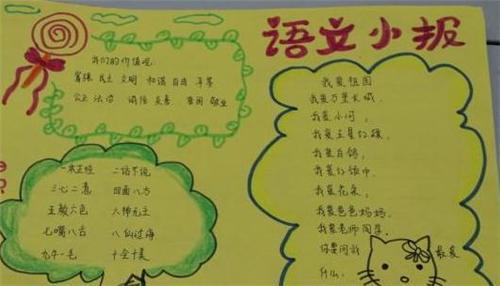 语文小报
我们的价值观
富强 民主 文明 和谐 自由 平等
公正 法治 诚信 友善 爱国 敬业
一本正经 二话不说
三心二意 四面八方
五颜六色 六神无主
七嘴八舌 八仙过海
九牛一毛 十全十美
我爱祖国
我爱万里长城,
我爱小河,
我爱五星红旗,
我爱白鸽,
我爱红领巾,
我爱花朵,
我爱爸爸妈妈,
我爱老师同学,
你要问我 最爱
什么,